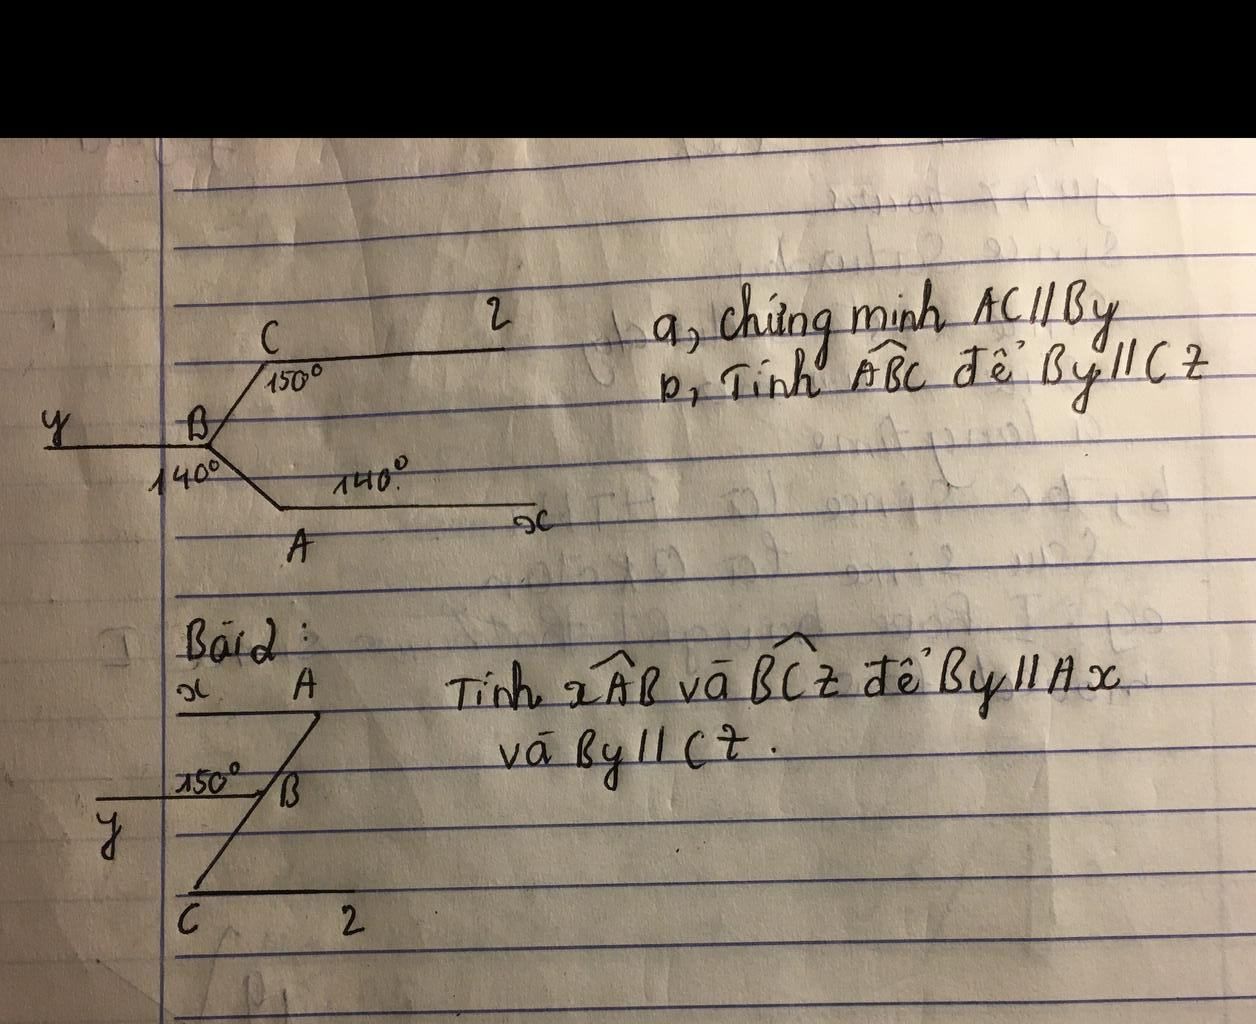 C
2
150°
y
B
140°
140°
A
x
a, chứng minh AC//By
b, Tính ABC để By//Cz
Bài 2:
x
A
150°
B
y
C
2
Tính xAB và BCz để By//Ax
và By//Cz.